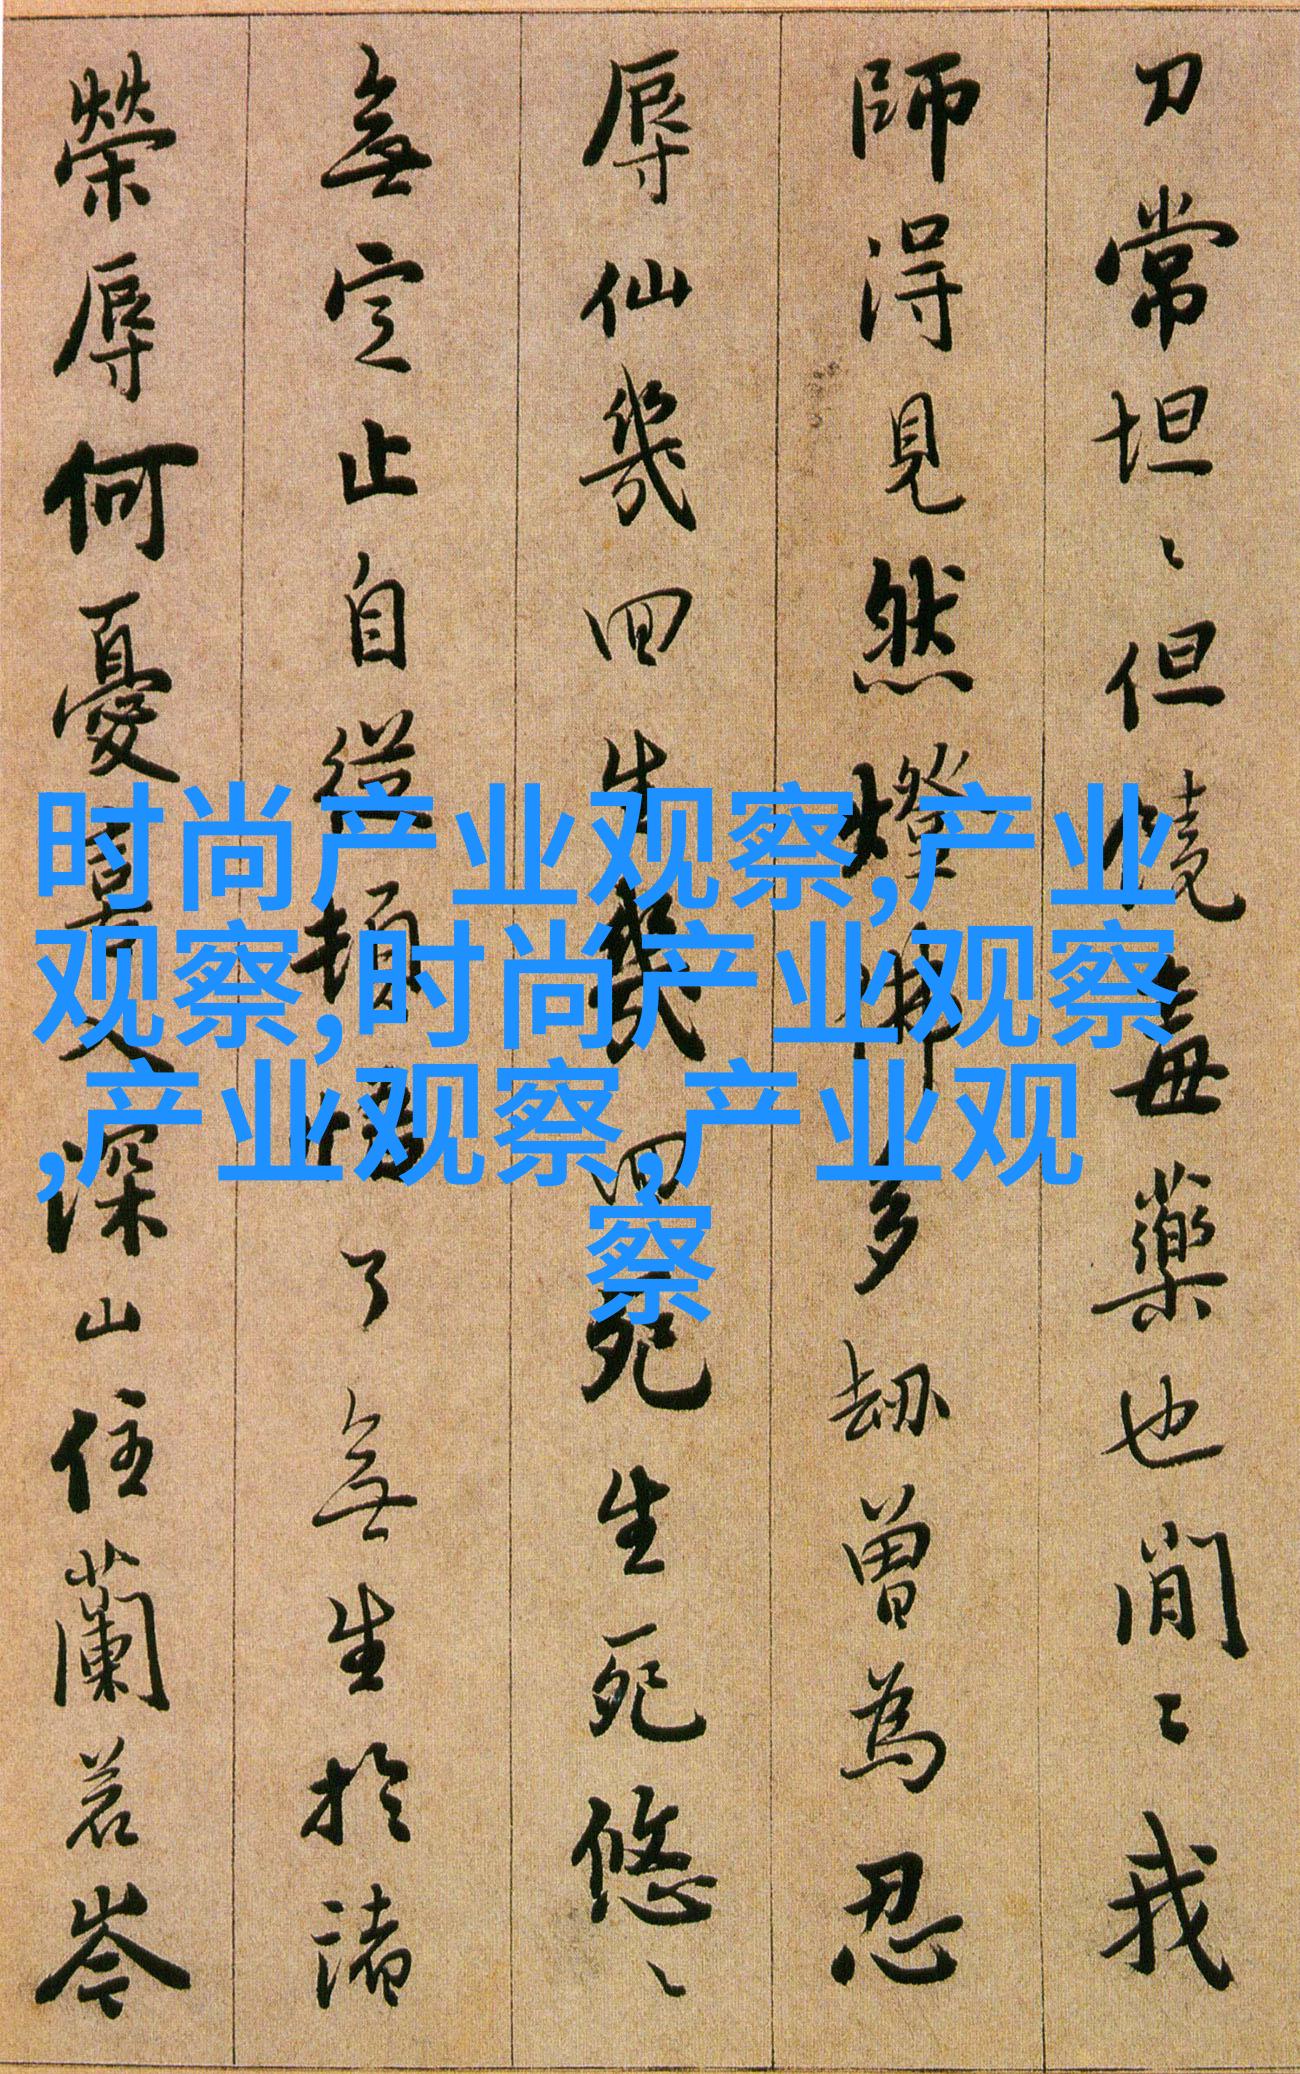 刀常坦〻但饒毒藥也閒〻我
師得見然燈佛多劫曾為忍
辱仙幾回生幾回死生死悠〻
無定止自從頓悟了無生於諸
榮辱何憂喜入深山住蘭若岑
时尚产业观察,产业
观察,时尚产业观察
,产业观察,产业观
察